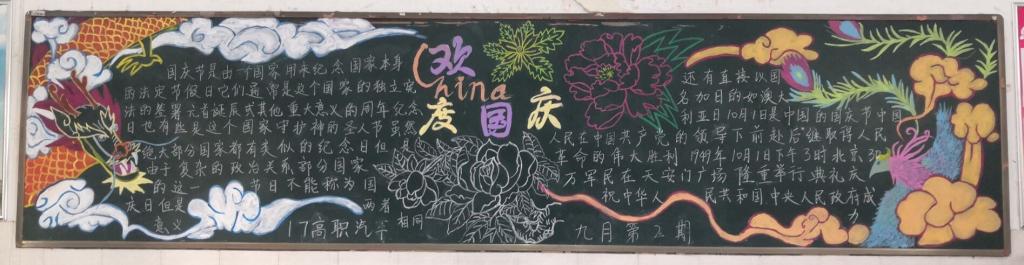 欢
China
度 国 庆
国庆节是由一个国家用来纪念国家本身
的法定节假日它们通常是这个国家的独立宪
法的签署元首诞辰或其他重大意义的周年纪念
日也有些是这个国家守护神的圣人节虽然
绝大部分国家都有类似的纪念日但
由于复杂的政治关系部分国家
的这一节日不能称为国
庆日但是 两者
意义 相同
17高职汽车
还有直接以国
名加日的如澳大
利亚日10月1日是中国的国庆节中国
人民在中国共产党的领导下前赴后继取得人民
革命的伟大胜利1949年10月1日下午3时北京30
万军民在天安门广场隆重举行典礼庆
祝中华人民共和国中央人民政府成
力
九月第2期